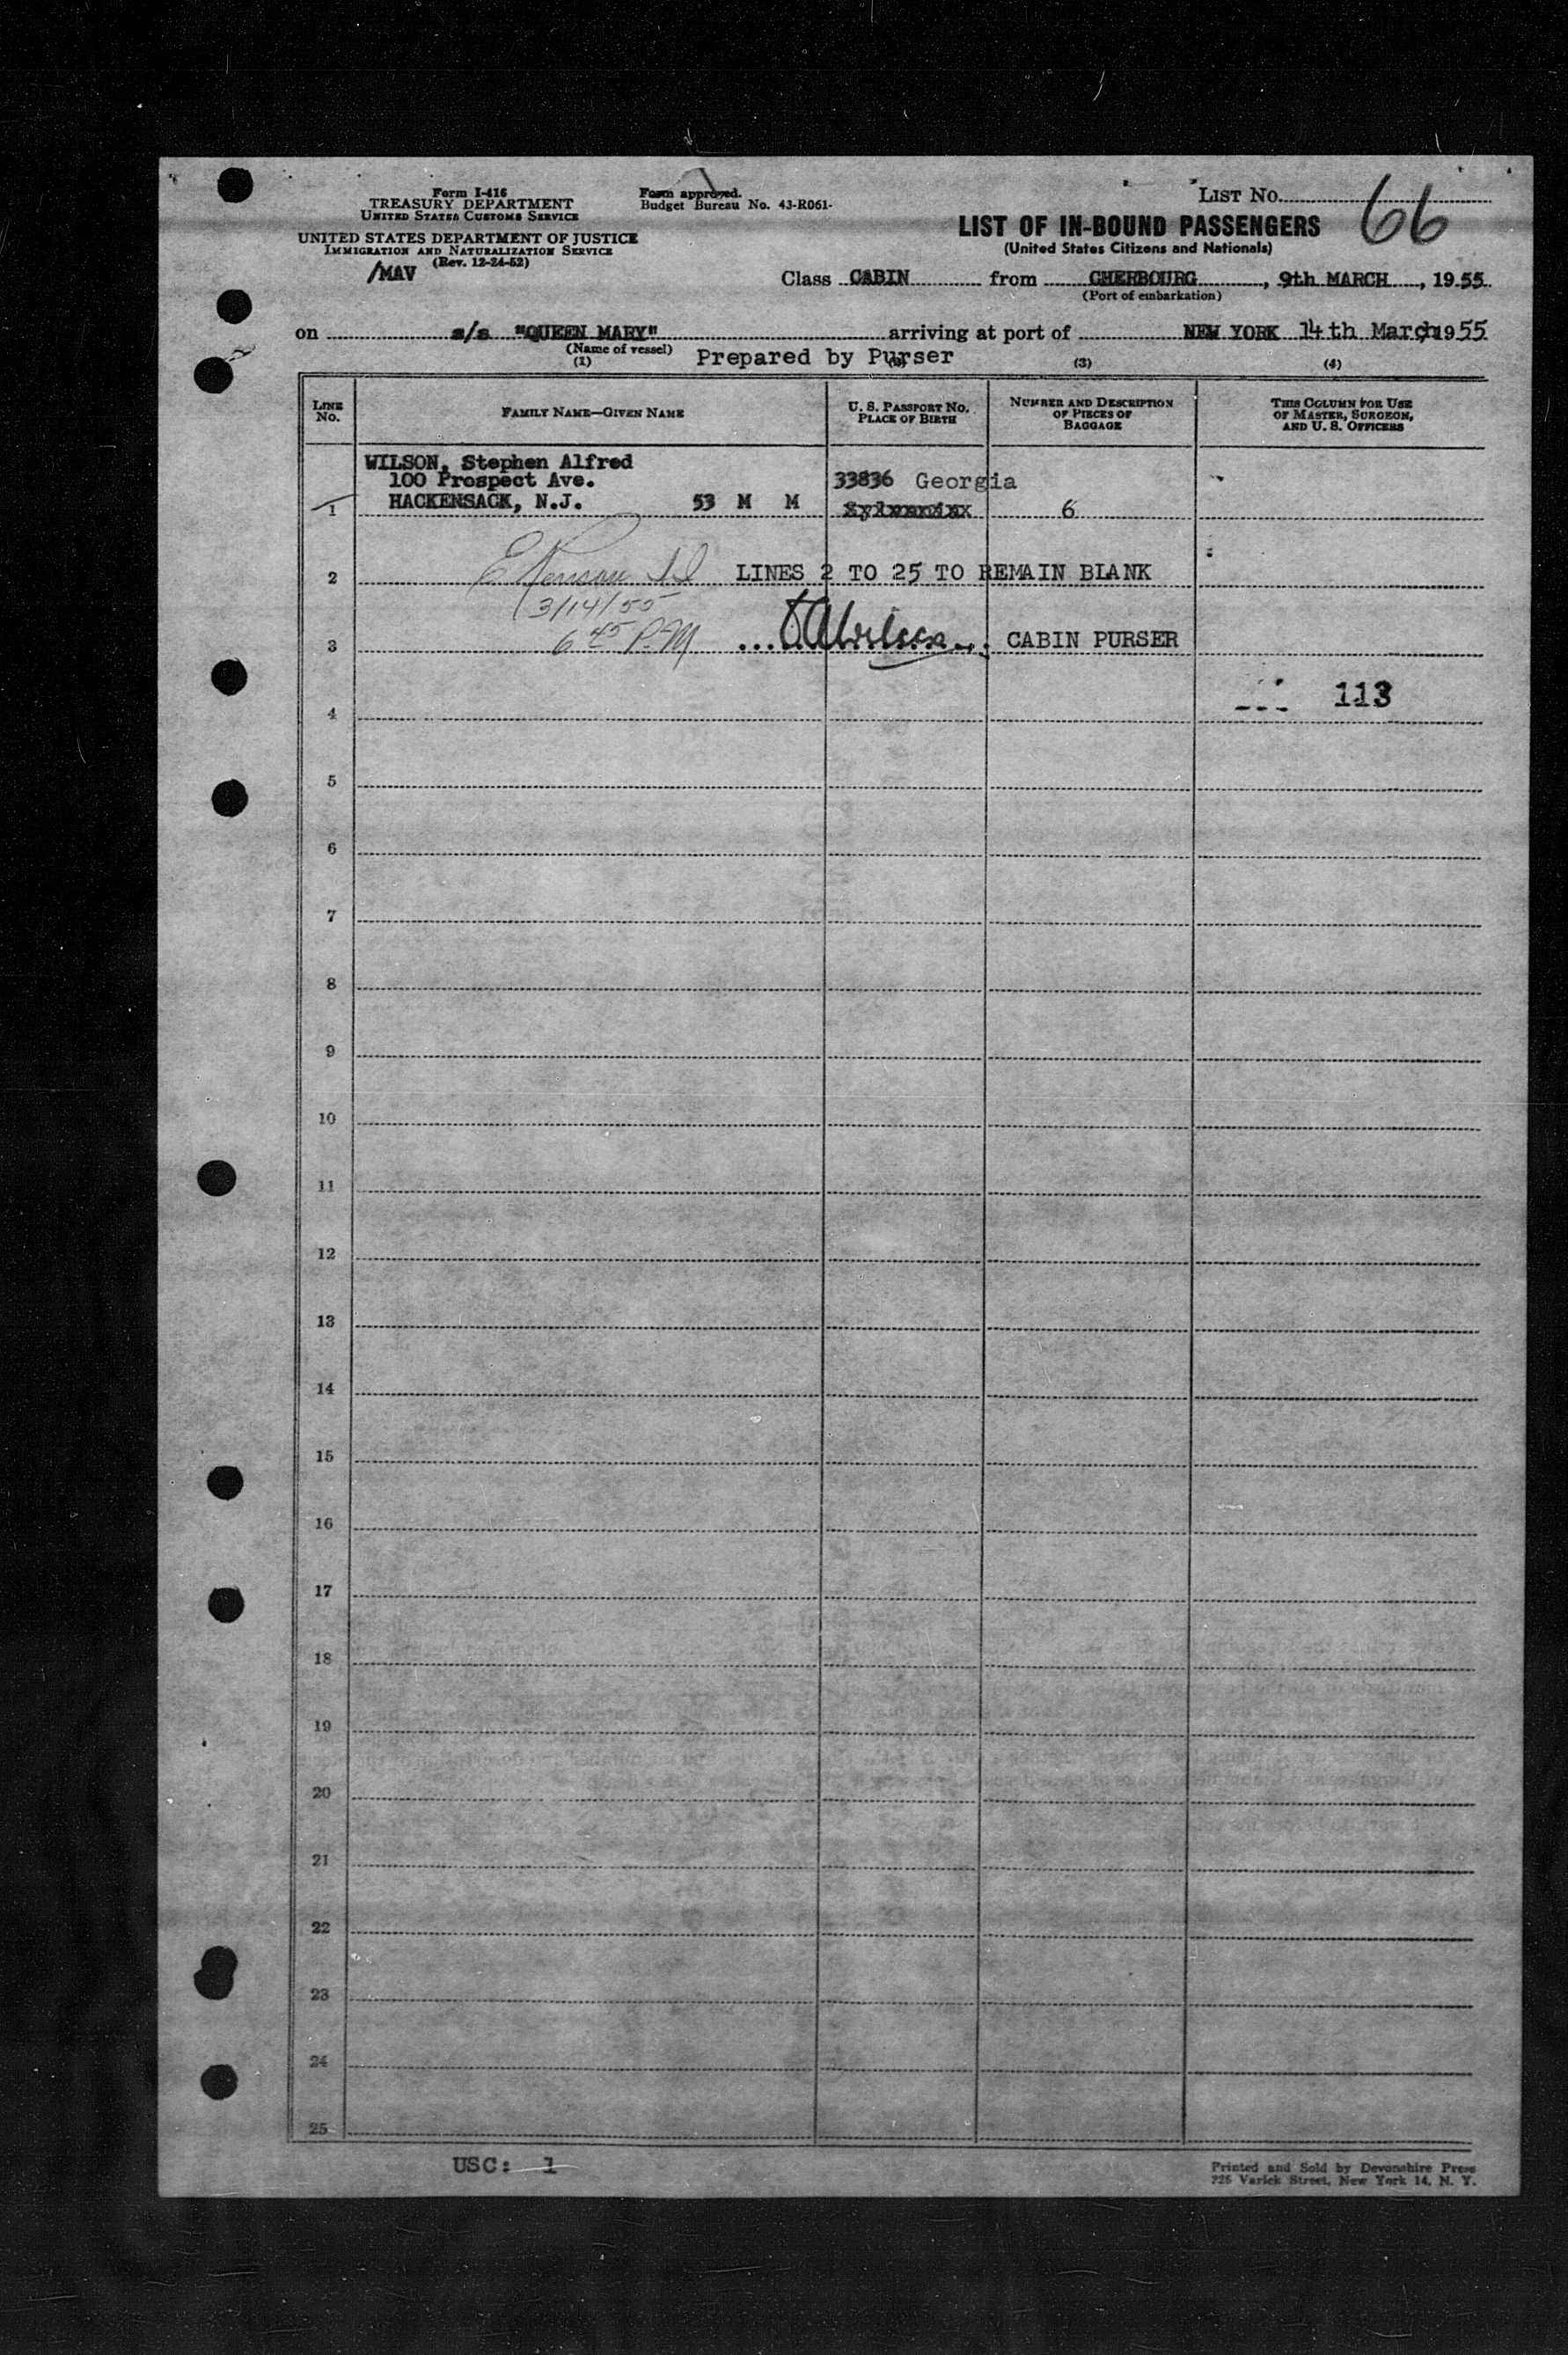 Form I-416
TREASURY DEPARTMENT
UNITED STATES CUSTOMS SERVICE
UNITED STATES DEPARTMENT OF JUSTICE
IMMIGRATION AND NATURALIZATION SERVICE
(Rev. 12-24-52)
/MAV
Form approved.
Budget Bureau No. 43-R061-
LIST NO.
66
LIST OF IN-BOUND PASSENGERS
(United States Citizens and Nationals)
Class CABIN from CHERBOURG, 9th MARCH, 1955
(Port of embarkation)
on s/s "QUEEN MARY" arriving at port of NEW YORK 14th March, 1955
(Name of vessel)
Prepared by Purser
(1) (3) (4)
LINE NO. FAMILY NAME—GIVEN NAME U. S. PASSPORT NO. PLACE OF BIRTH NUMBER AND DESCRIPTION OF PIECES OF BAGGAGE THIS COLUMN FOR USE OF MASTER, SURGEON, AND U. S. OFFICERS
WILSON, Stephen Alfred
100 Prospect Ave. 33836 Georgia
1 HACKENSACK, N.J. 53 M M 6
2 LINES 2 TO 25 TO REMAIN BLANK
3/14/55
3 6 45 P.M CABIN PURSER
113
4
5
6
7
8
9
10
11
12
13
14
15
16
17
18
19
20
21
22
23
24
25
USC: 1
Printed and Sold by Devonshire Press
225 Varick Street, New York 14, N. Y.